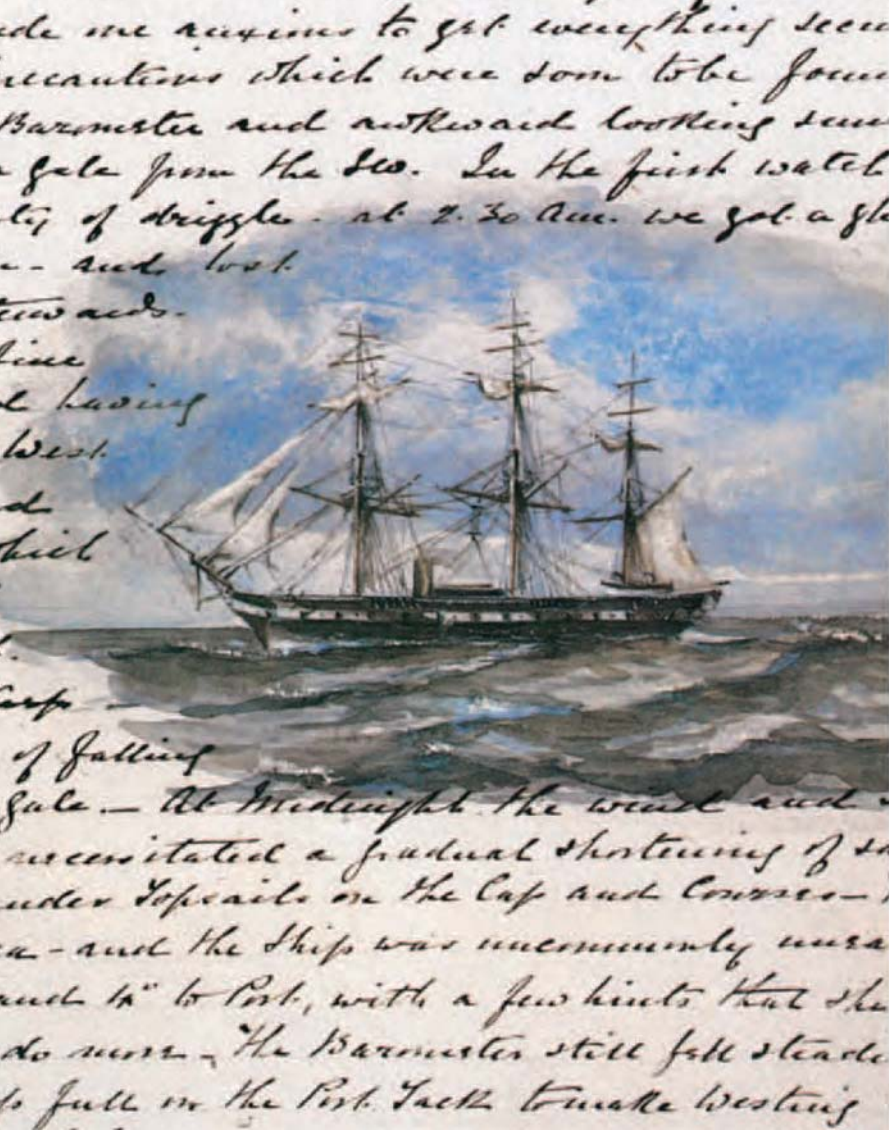 me anxious to get everything
precautions which were soon to be
Barometer and awkward looking
gale from the SW. In the first watch
of drizzle - at 2.30 am. we got a
- and lost
wards.
fine
having
West
d
which
of falling
gale. — At Midnight the wind and
necessitated a gradual shortening of
under Topsails on the Cap and Courses —
- and the Ship was uncommonly
and to Port, with a few hints that she
do more - The Barometer still fell
full on the Port Tack to make Westing